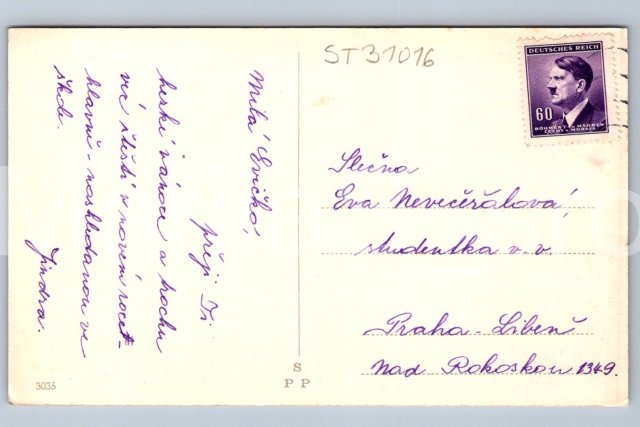 ST31016
DEUTSCHES REICH
60
BÖHMEN U. MÄHREN
ČECHY A MORAVA
Milá Evičko,
přeji Ti
hezké vánoce a trochu
víc štěstí v novém roce t-
hlavně - nashledanou ve
škole.
Jindra.
Slečna
Eva Nevečeřalová,
studentka v. v.
Praha - Libeň
nad Rokoskou 1349.
3035
S
P P